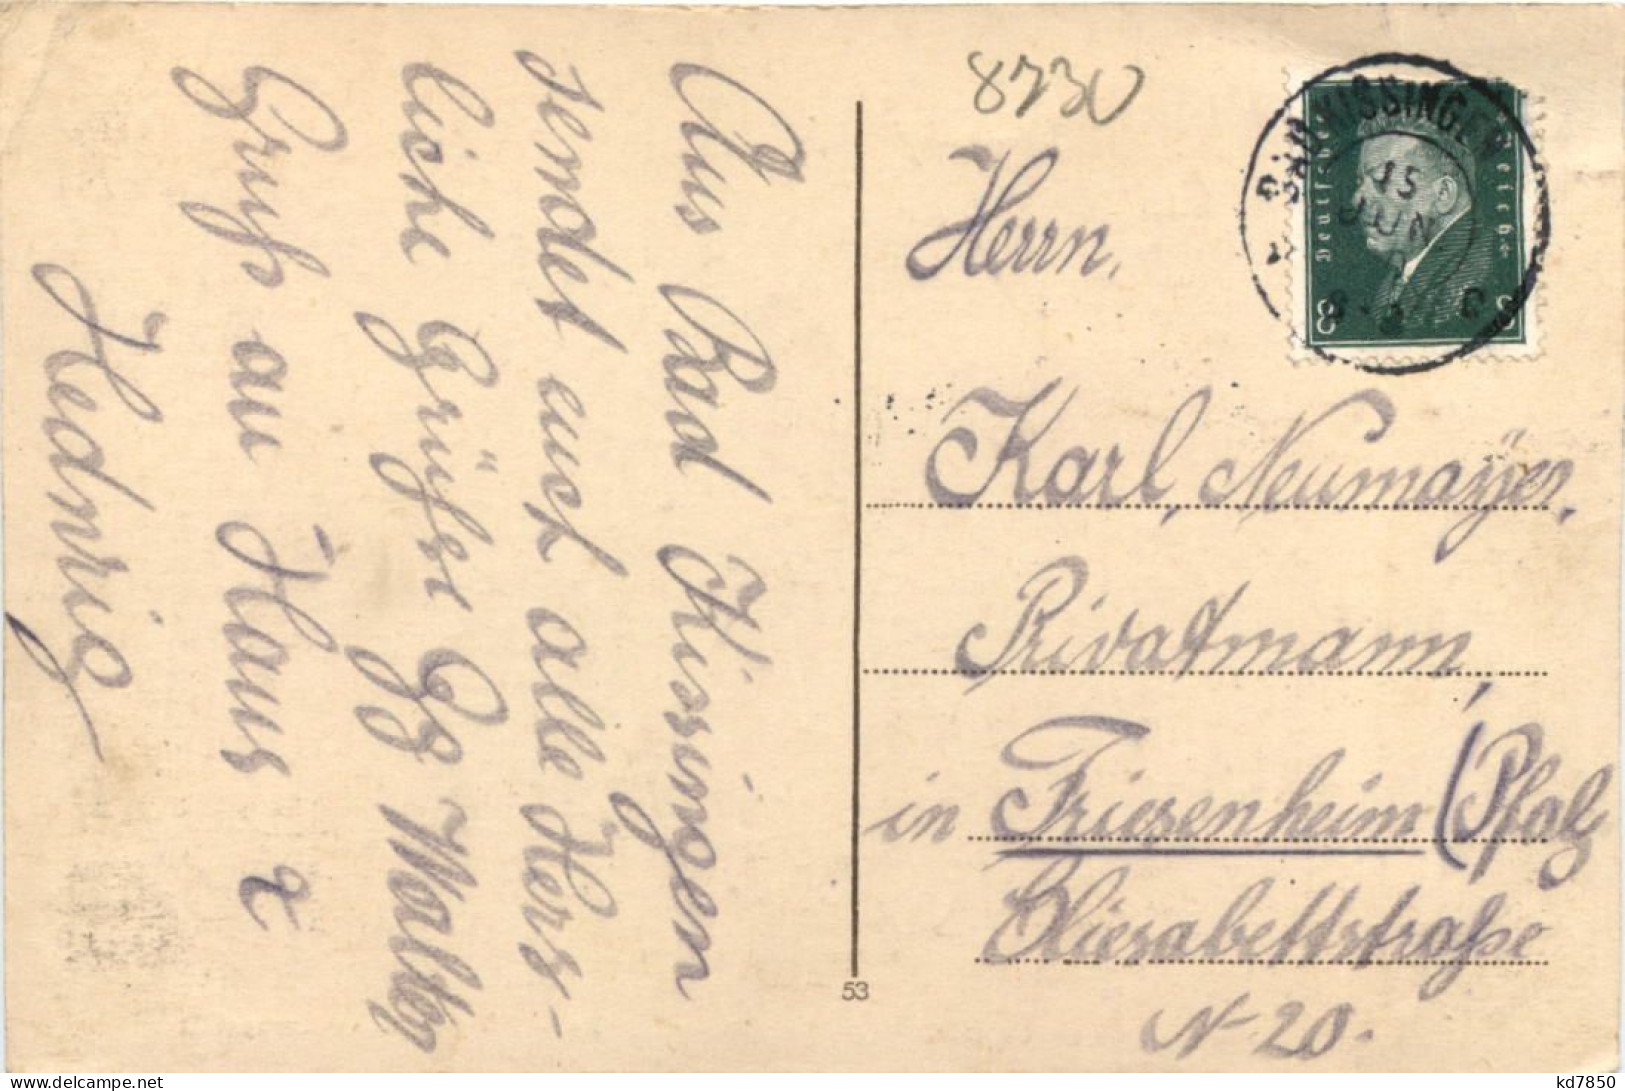 Aus Bad Kissingen
sendet euch alle Herz-
liche Grüße Gg Walter
Gruß an Haus x
Hednrig
8730
Herrn,
Karl, Neumayer,
Privatmann,
in Friesenheim (Pfalz
Eliesabettstraße
N 20.
53
BAD KISSINGEN
15
JUN
Deutsches Reich
8 8
kd7850